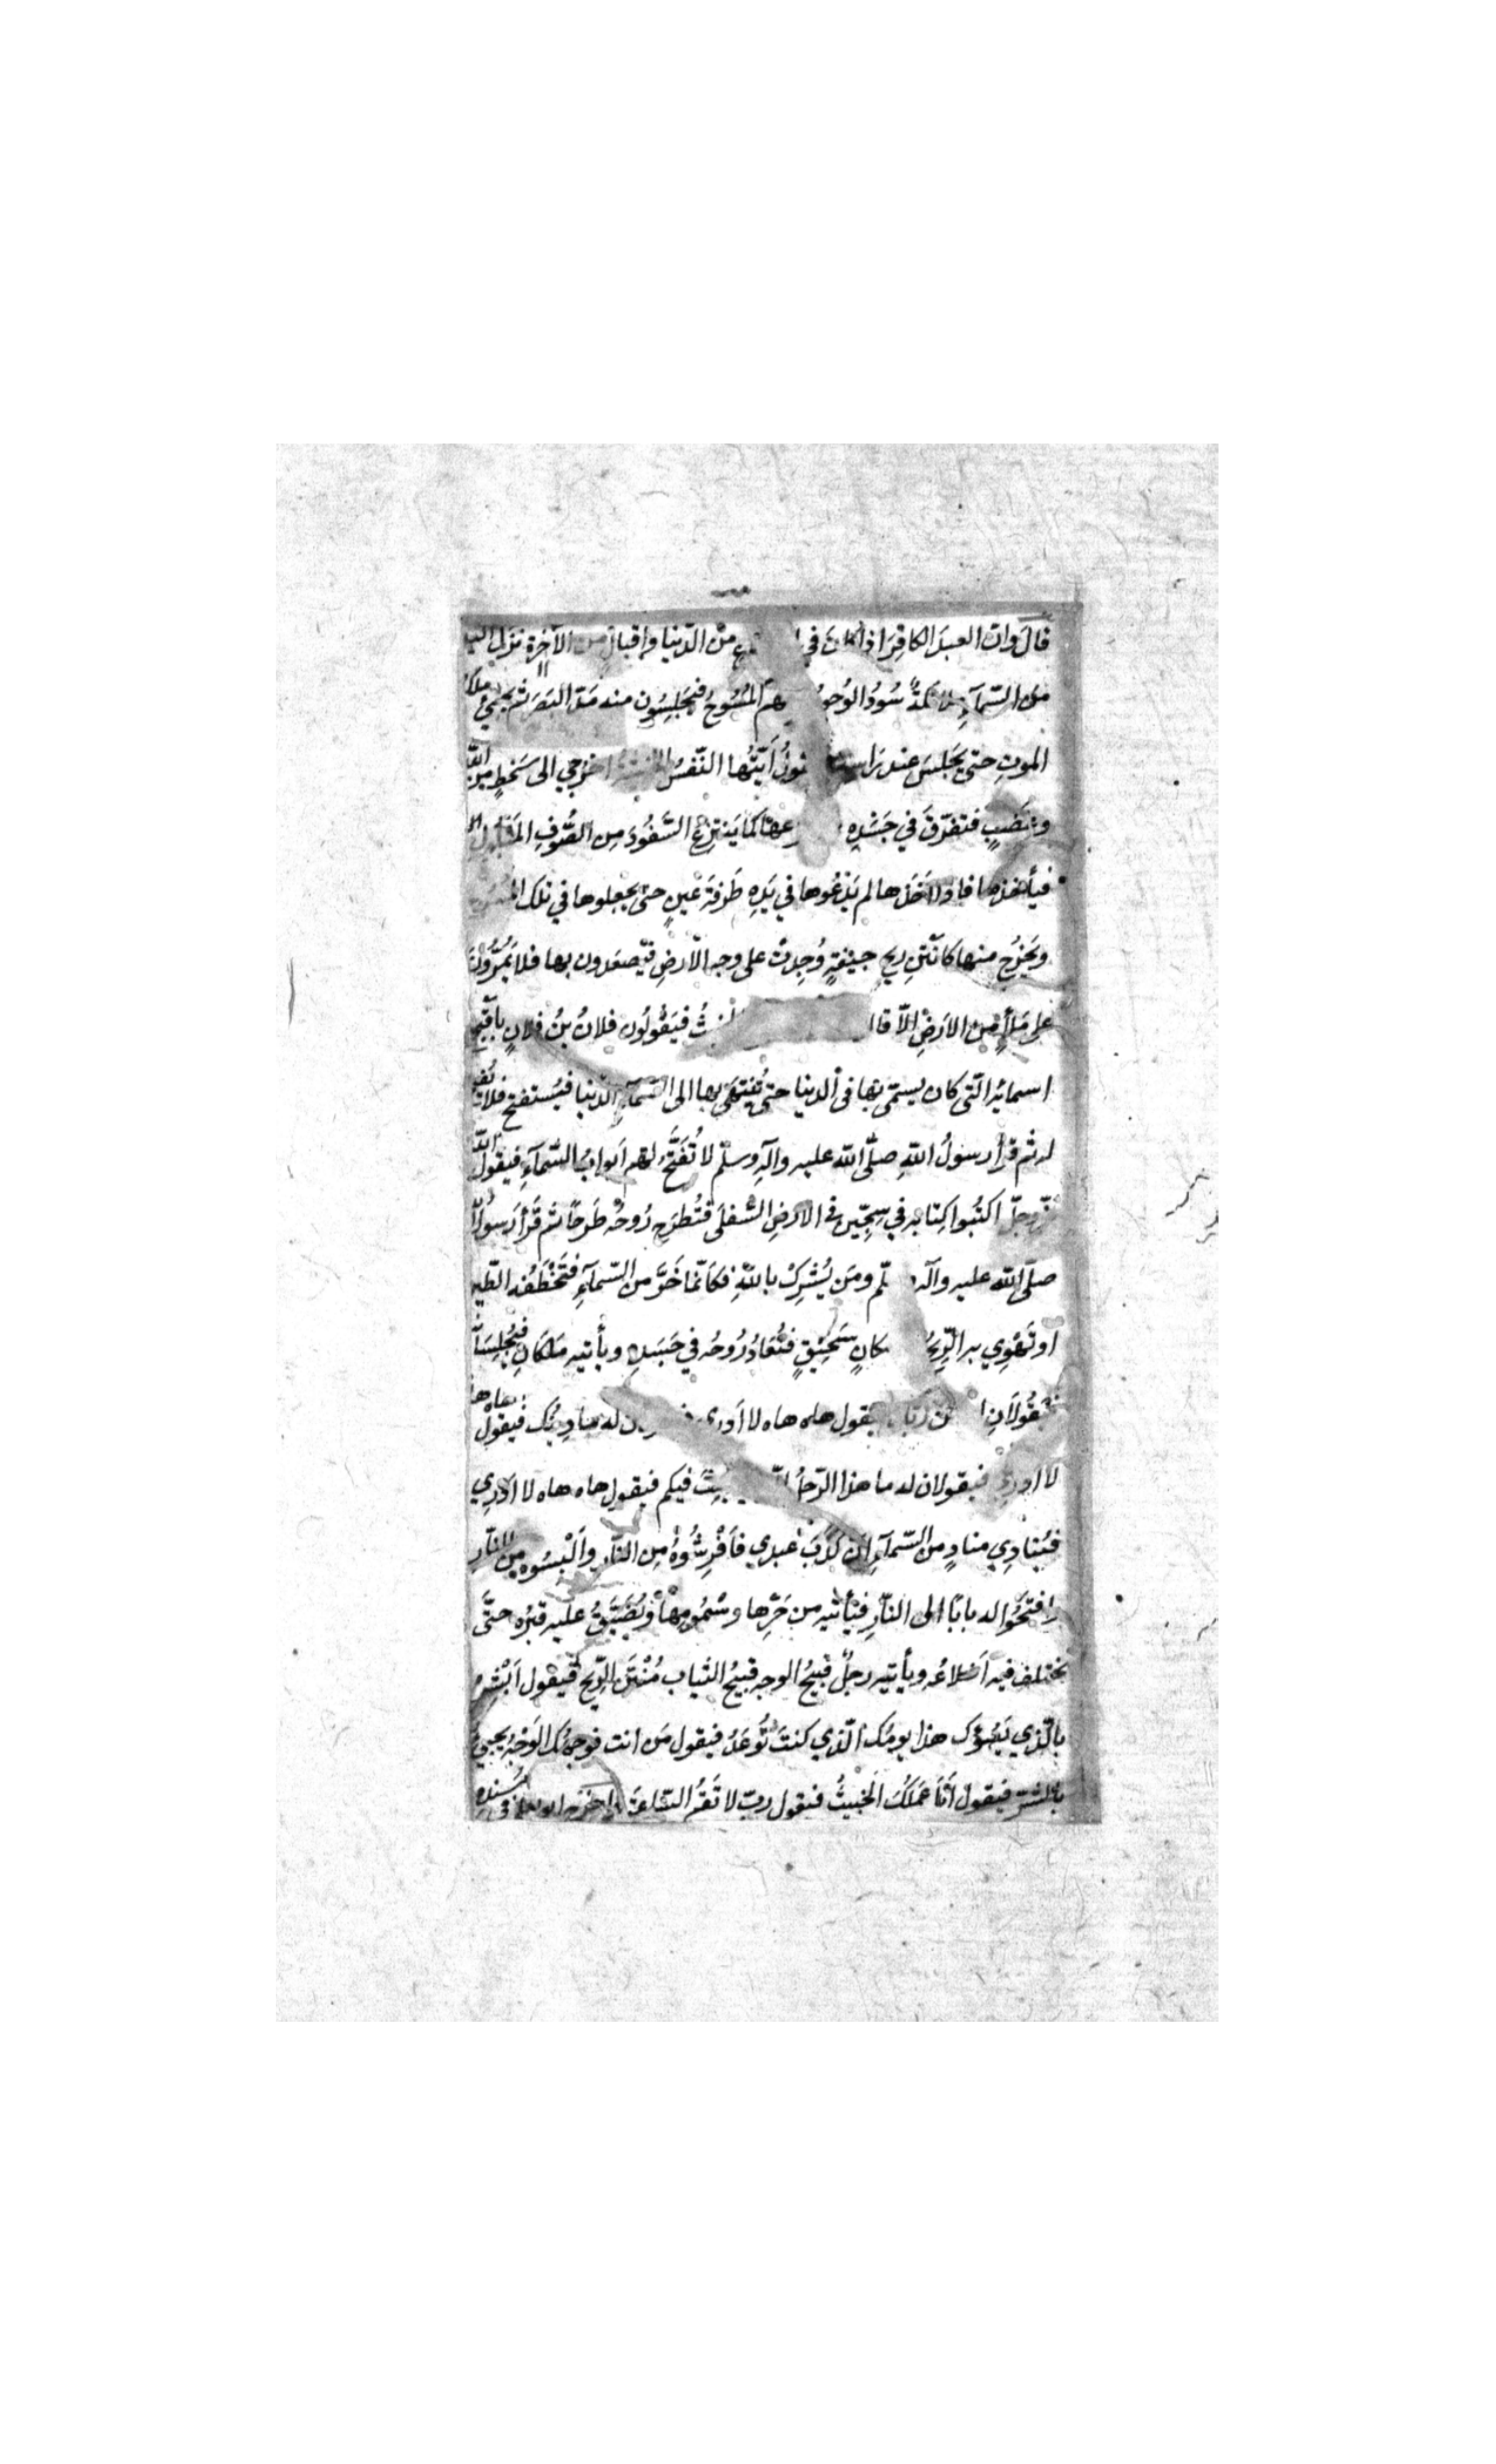 قالَ وانّ العبدَ الكافِرَ اذا كانَ في من الدّنيا واِقبالٍ من الآخِرةِ نزلَ اليه
من السّمآءِ ملائكةٌ سُودُ الوُجوهِ المُسُوحُ فيَجلِسُون منه مَدّ البَصَرَ ثم يجيئُ ملك
الموتِ حتى يَجلسَ عند رَاسه اَيّتُها النّفسُ الخبيثةُ اخرُجي الى سَخطٍ من الله
وغَضَبٍ فتفرّقَ في جَسَدِهِ كما يَنتزِعُ السَّفُودَ مِن الصُّوفِ المَبلولِ
فيأخذها فاذا اَخَذَها لم يَدَعُوها في يَدِهِ طَرفَةَ عَينٍ حتى يجعلوها في تلك المُسُوح
ويَخرُج منها كاَنتَنِ ريحِ جيفةٍ وُجِدتْ على وجه الاَرضِ فيَصعَدون بها فلا يَمُرُّونَ
على مَلأٍ من الاَرضِ الّا قالوا الخبيثُ فيَقُولُون فلانُ بنُ فلانٍ باَقبح
اسمائه الّتي كان يسمّى بها في الدنيا حتى يُنتهَى بها الى السّمآءِ الدّنيا فيُستفتح فلا تُفتح
له ثم قرأ رسولُ اللّهِ صلّى اللّه عليه وآلِه وسلّم لا تُفَتَّحُ لهم اَبوابُ السّمآءِ فيقول اللّه
عزّ وجلّ اكتُبوا كِتابَه في سِجِّين في الارضِ السّفلَى فتُطرَح رُوحُه طَرحًا ثم قَرأ رَسولُ اللّه
صلّى اللّه عليه وآله وسلّم ومَن يُشرِكْ باللّهِ فكاَنّما خَرَّ من السّمآءِ فتَخْطَفُه الطّير
او تَهْوِي به الرِّيحُ مكانٍ سَحِيقٍ فتُعَادُ رُوحُه في جَسَدِه ويأتيه مَلَكانِ فيُجلِسَانه
فيَقُولَانِ من ربّك فيقول هاه هاه لا اَدري له ما دينُك فيقول هاه هاه
لا ادري فيقولان له ما هذا الرّجلُ الّذي بُعِثَ فيكم فيقول هاه هاه لا اَدرِي
فيُنادِي منادٍ من السّمآءِ اَن كذَبَ عَبدي فاَفْرِشُوهُ مِن النّارِ واَلْبِسُوه من النّارِ
وافتَحُوا له بابًا الى النّارِ فيَأتيه من حَرِّها وسَمُومِها ويُضَيَّقُ عليه قبرُه حتّى
تختلف فيه اَضلاعُه ويأتيه رجلٌ قبيحُ الوجه قبيحُ الثياب مُنْتَنُ الرّيح فيقول اَبْشِر
بالّذي يَسُوؤك هذا يومُك الّذي كنتَ تُوعَدُ فيقول مَن انت فوجهُك الوَجْهُ يجيئُ
بالشرّ فيقول اَنَا عَمَلُكَ الخبيثُ فيقول ربّ لا تَقُمِ السّاعَةَ